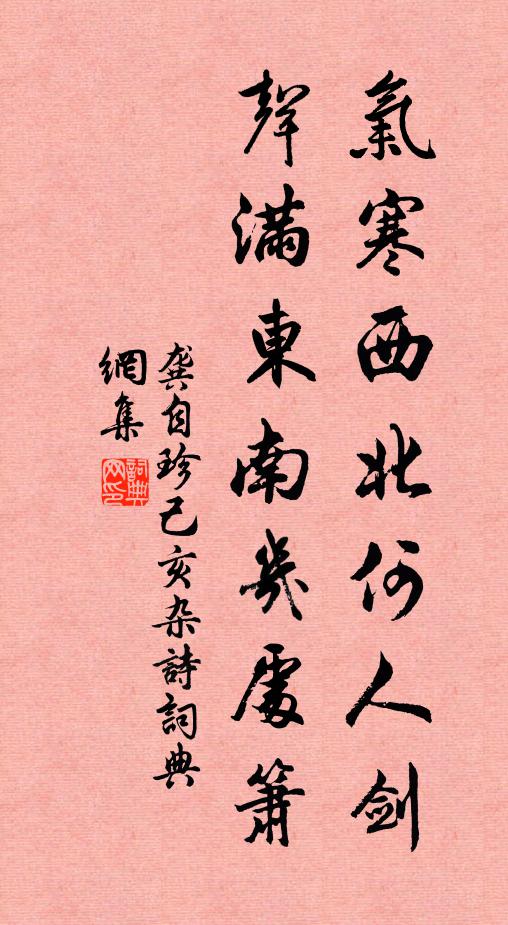 氣寒西北何人劍
聲滿東南幾處簫
龔自珍己亥杂詩詞典
網集
詞典
网印